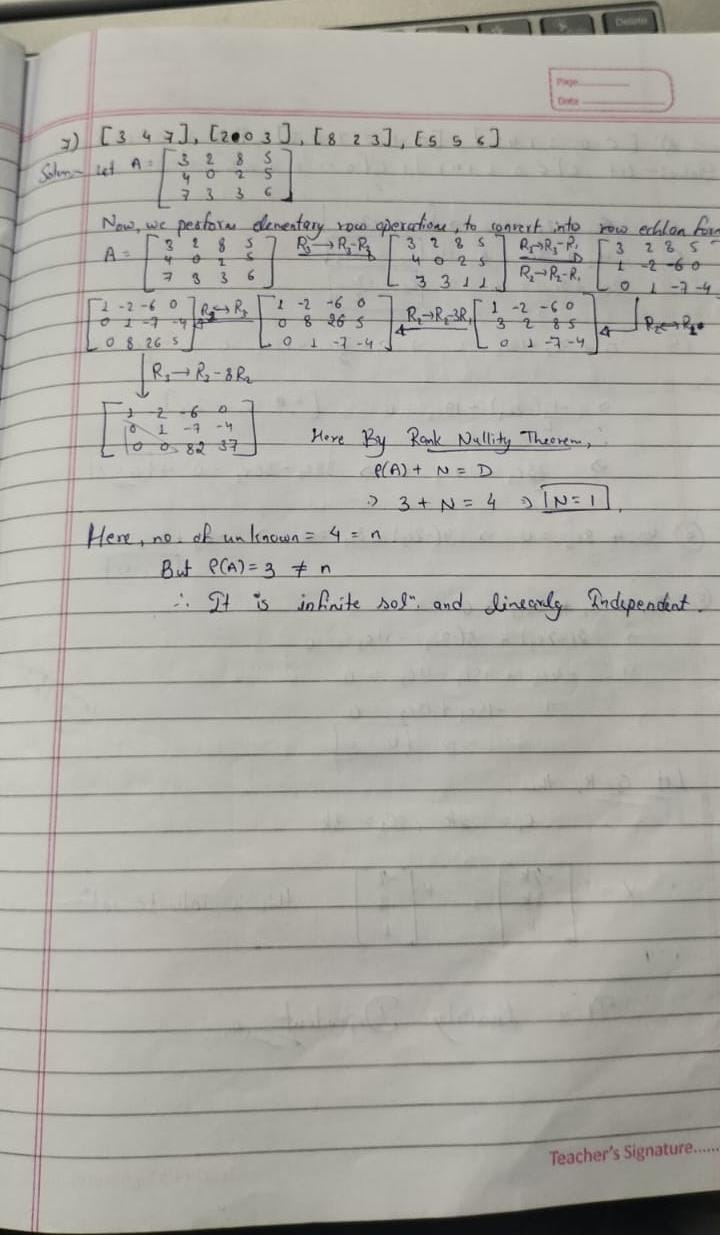 Delete
Page
Date
7) [3 4 7], [2 0 3], [8 2 3], [5 5 6]
Soln:- Let A = [3 2 8 5
4 0 2 5
7 3 3 6]
Now, we perform elementary row operations, to convert into row echlon form
A = [3 2 8 5
4 0 2 5
7 3 3 6] R3→R3-R2 [3 2 8 5
4 0 2 5
3 3 1 1] R3→R3-R1
R2→R2-R1 [3 2 8 5
1 -2 -6 0
0 1 -7 -4
R2↔R1
[1 -2 -6 0
3 2 8 5
0 1 -7 -4] R2→R2-3R1 [1 -2 -6 0
0 8 26 5
0 1 -7 -4] R2↔R3 [1 -2 -6 0
0 1 -7 -4
0 8 26 5]
R3→R3-8R2
[1 -2 -6 0
0 1 -7 -4
0 0 82 37]
Here By Rank Nullity Theorem,
ρ(A) + N = D
⇒ 3 + N = 4 ⇒ N = 1
Here, no. of unknown = 4 = n
But ρ(A) = 3 ≠ n
∴ It is infinite solⁿ. and linearly Independent.
Teacher's Signature......